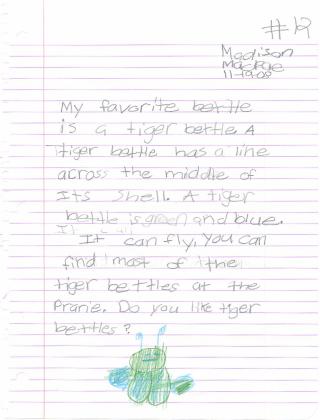 #12
Madison
MacRae
11-19-08
My favorite bettle
is a tiger bettle A
tiger bettle has a line
across the middle of
Its shell. A tiger
bettle is green and blue.
It can fly, You can
find most of the
tiger bettles at the
Prarie. Do you like tiger
bettles?